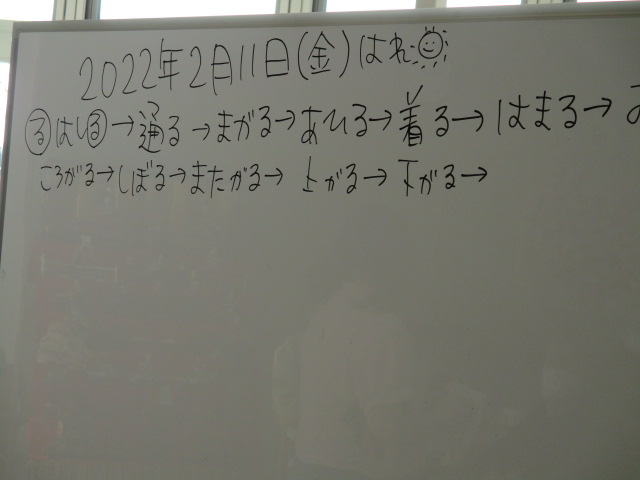 2022年2月11日(金)はれ
るはしる→通る→まがる→あひる→着る→はまる→
ころがる→しぼる→またがる→上がる→下がる→